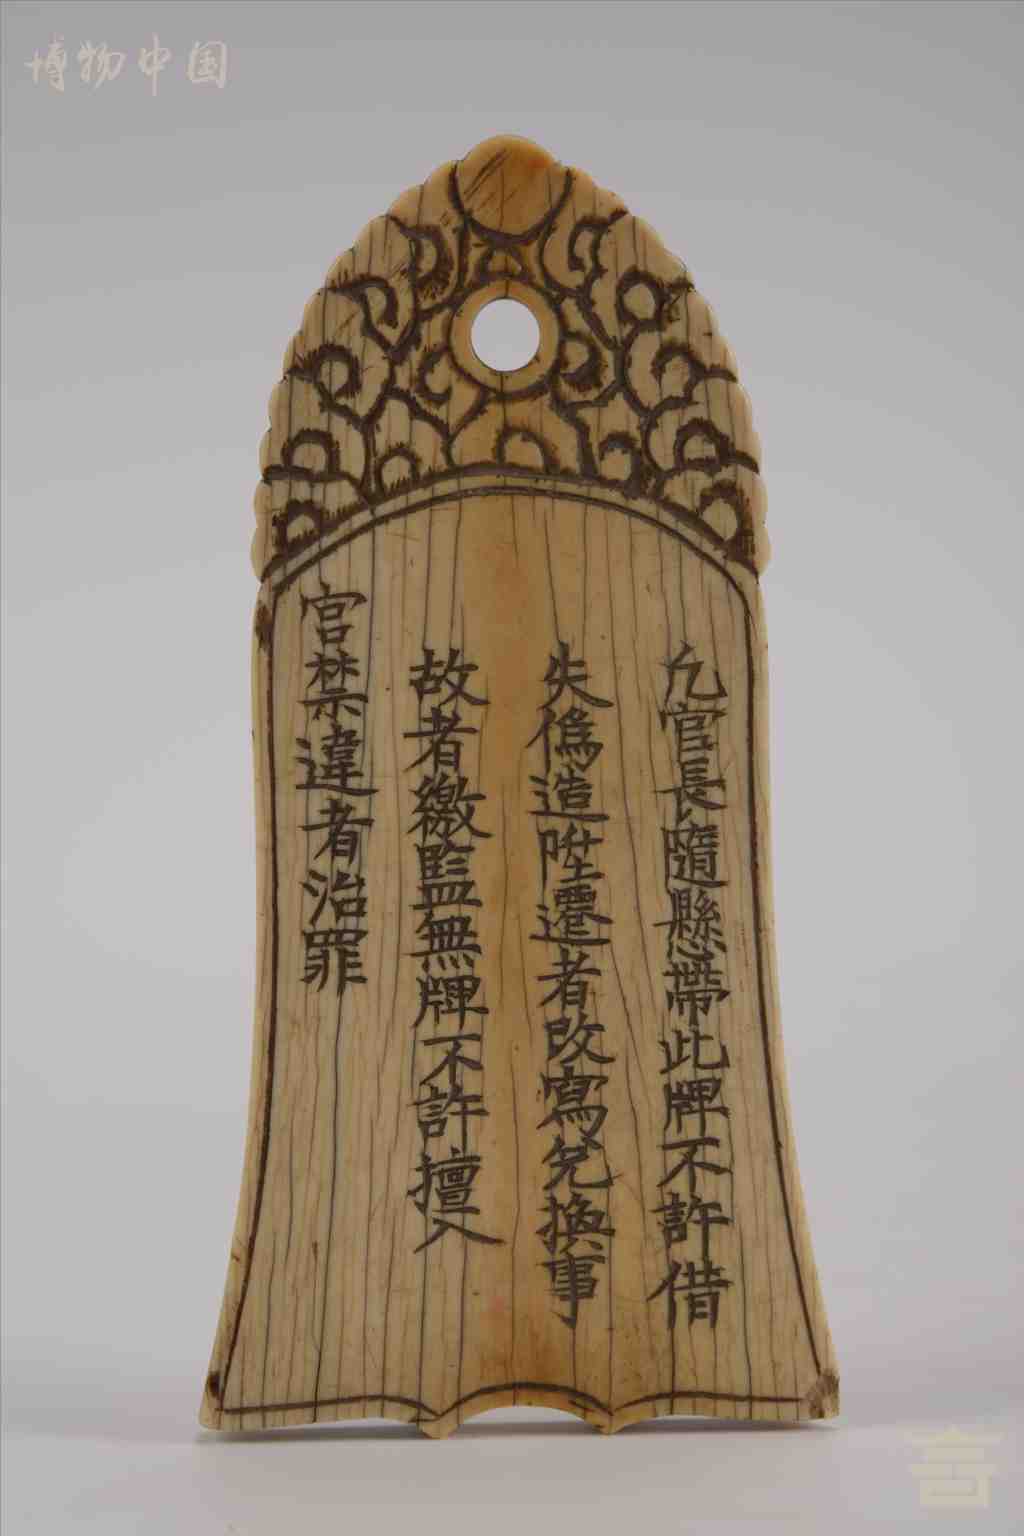 博物中国
凢官長隨懸帶此牌不許借
失僞造陞遷者改寫兌換事
故者繳監無牌不許擅入
宫禁違者治罪